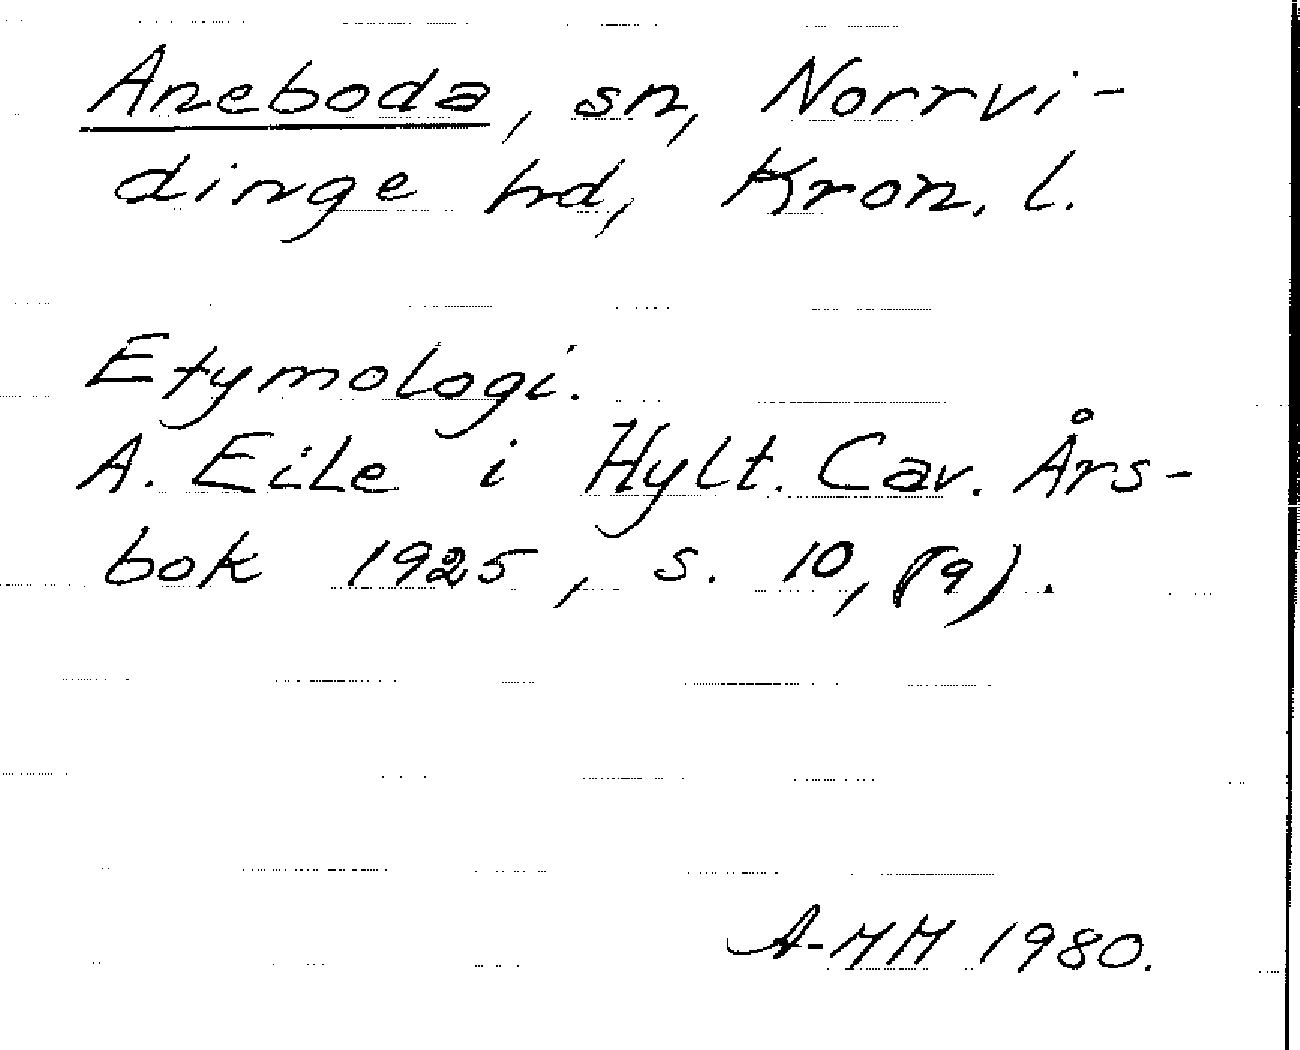 Aneboda, sn, Norrvi-
dinge hd, Kron. l.
Etymologi.
A. Eile i Hylt. Cav. Års-
bok 1925, s. 10, (9).
A-MM 1980.